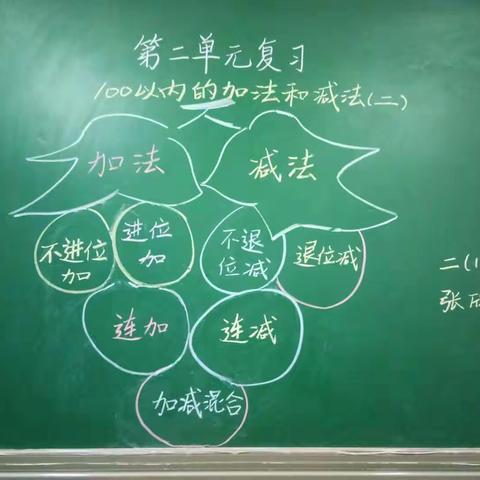 第二单元复习
100以内的加法和减法(二)
加法
减法
不进位
加
进位
加
不退
位减
退位减
连加
连减
加减混合
二(1
张